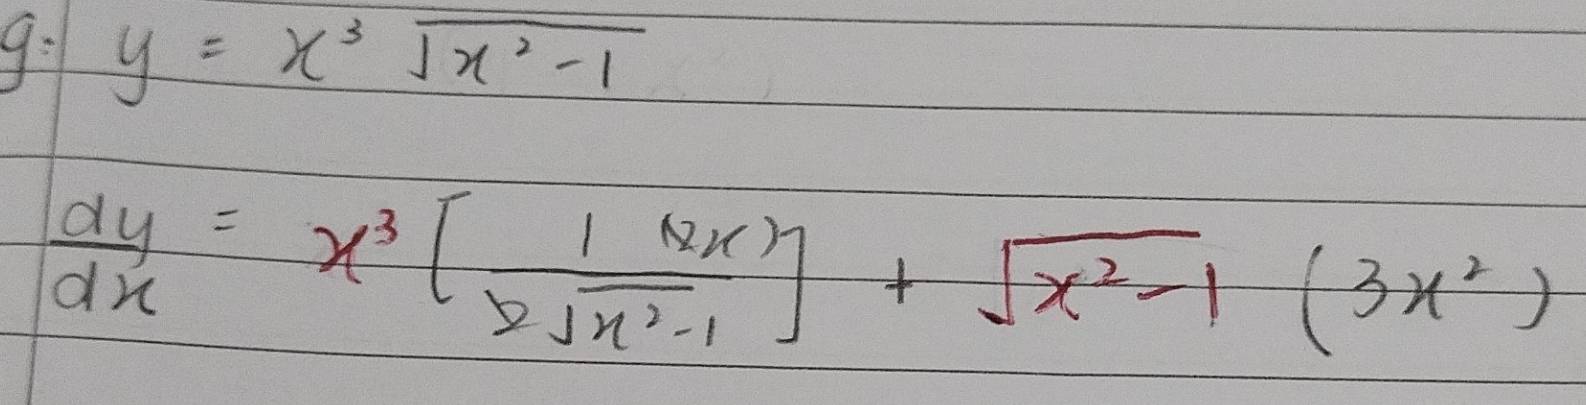 g. y = x³ √(x² - 1)
dy/dx = x³ [1 (2x) / 2√(x² - 1)] + √(x² - 1) (3x²)